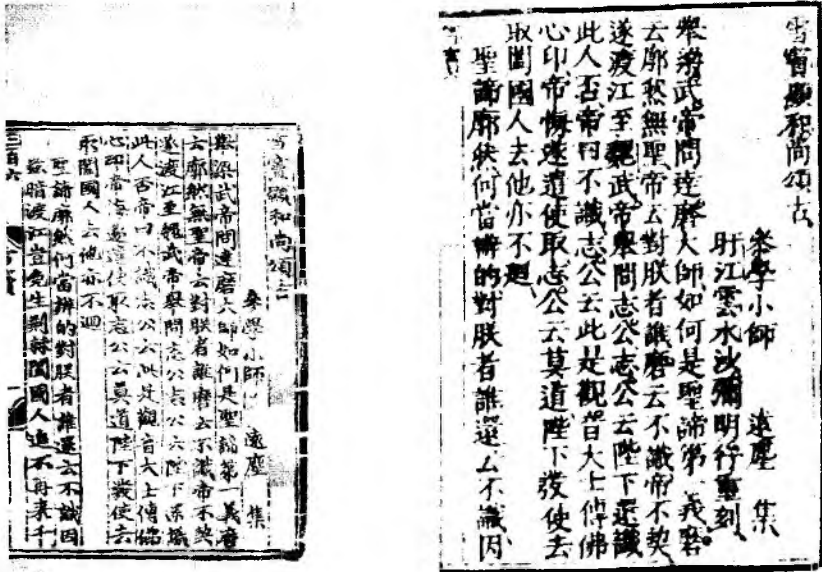 雪竇顯和尚頌古
參學小師　遠塵　集
盱江雲水沙彌明行重刻
舉梁武帝問達磨大師如何是聖諦第一義磨
云廓然無聖帝云對朕者誰磨云不識帝不契
遂渡江至魏武帝舉問志公志公云陛下還識
此人否帝曰不識志公云此是觀音大士傳佛
心印帝悔遂遣使取志公云莫道陛下發使去
取闔國人去他亦不迴
聖諦廓然何當辨的對朕者誰還云不識因
雪竇顯和尚頌古
參學小師　遠塵　集
舉梁武帝問達磨大師如何是聖諦第一義磨
云廓然無聖帝云對朕者誰磨云不識帝不契
遂渡江至魏武帝舉問志公志公云陛下還識
此人否帝曰不識志公云此是觀音大士傳佛
心印帝悔遂遣使取志公云莫道陛下發使去
取闔國人去他亦不迴
聖諦廓然何當辨的對朕者誰還云不識因
茲暗渡江豈免生荊棘闔國人追不再來千
三百六